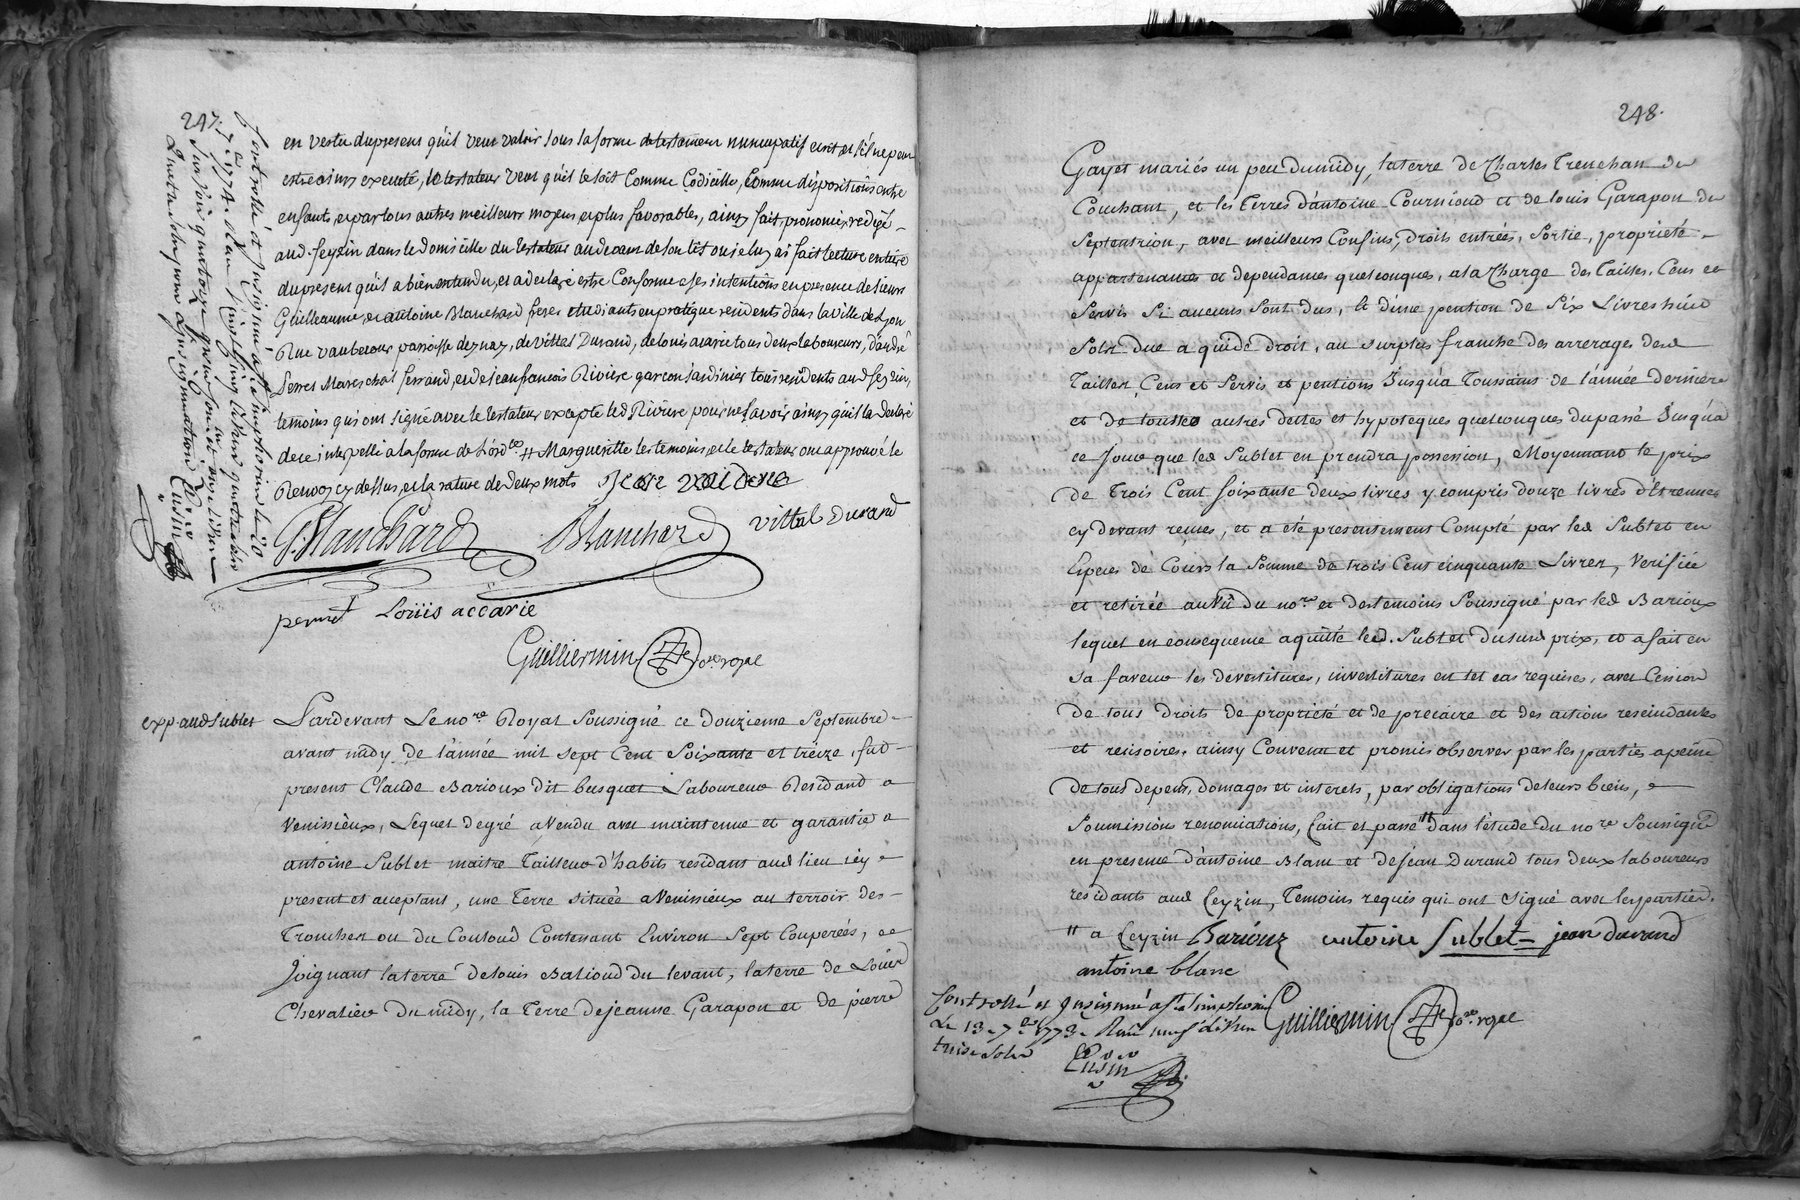 247.
en vertu du present qu'il veut valoir sous la forme de testament nuncupatif ecrit et s'il ne peut
estre ainsy executé, le testateur veut qu'il le soit Comme Codicille, Comme dispositions entre
enfants, et par tous autres meilleurs moyens et plus favorables, ainsy fait, prononcé, redigé
aud. feyzin dans le Domicille du testateur audevant de son lit ou je luy ai fait lecture entiere
du present qu'il a bien entendu, et a declaré estre Conforme a ses intentions en presence de sieurs
Guilleaume, et antoine Blanchard freres etudiants en pratique residents dans la ville de Lyon
Rue vaubecour parroisse d'eynay, de vittal Durand, de louis acarie tous deux laboureurs, d'andré
perret Mareschal ferrand, et de jean francois Riviere garcon Jardinier tous residents aud. feyzin,
temoins qui ont signé avec le testateur excepté led. Riviere pour ne scavoir ainsy qu'il l'a declaré
de ce interpellé a la forme de L'ord.ce # Margueritte les temoins et le testateur ont approuvé le
Renvoy cy dessus, et la rature de deux mots
G. Blanchard Blanchard vittal Durand
perret Loüis accarie
Guilliermin no.re royal
exp. aud. Sublet
Pardevant Le no.re Royal Soussigné ce douzieme Septembre
avant midy de l'année mil sept Cent Soixante et treize, fut
present Claude Barioux dit busquet Laboureur Residand a
Venissieux, Lequel de gré a Vendu avec maintenue et garantie a
antoine Sublet maitre Tailleur d'habits residant aud. lieu icy
present et acceptant, une Terre située a Venissieux au terroir des
Tronches ou du Couloud Contenant Environ Sept Couperées,
Joignant la terre de louis Balioud du levant, la terre de Louis
Chevalier Du midy, la Terre de jeanne Garapon et de pierre
248.
Gayet mariés un peu du midy, la terre de Charles Trenchan du
Couchant, et les Terres d'antoine Cournioud et de louis Garapon du
Septentrion, avec meilleurs Confins, droits entrées, Sortie, propriété
appartenances et dependances quelconques, a la Charge des Tailles, Cens et
Servis Si aucuns Sont dus, et d'une pention de Six Livres huit
Sols due a qui de droit, au surplus franche des arrerages desd.
Tailles Cens et Servis et pentions Jusqu'a Toussaints de l'année derniere
et de touttes autres dettes et hypoteques quelconques du passé Jusqu'a
ce Jour que led. Sublet en prendra possession, Moyennant le prix
de Trois Cent soixante deux livres y compris douze livres d'Etrennes
cy devant reçues, et a été presentement Compté par led. Sublet en
Especes de Cours la Somme de trois Cent cinquante Livres, Verifiée
et retirée au Vû du no.re et des temoins Soussigné par led. Barioux
lequel en consequence a quitté led. Sublet dususd. prix, et a fait en
sa faveur les devestitures, investitures en tel cas requises, avec Cession
de tous droits de propriété et de precaire et des actions rescindantes
et rescisoires. ainsy Convenu et promis observer par les parties a peine
de tous depens, domages et interets, par obligations de leurs biens,
Soumissions renonciations, fait et passé # dans l'etude du no.re Soussigné
en presence d'antoine Blanc et de jean Durand tous deux laboureurs
residants aud. feyzin, Temoins requis qui ont Signé avec les parties.
# a feyzin Bariouz antoine Sublet jean durand
antoine blanc
Controllé et Insinué a St simphorien
Le 13 7.bre 1773. Reçu neuf livres
treize Sols
Guilliermin no.re royal
Cusin